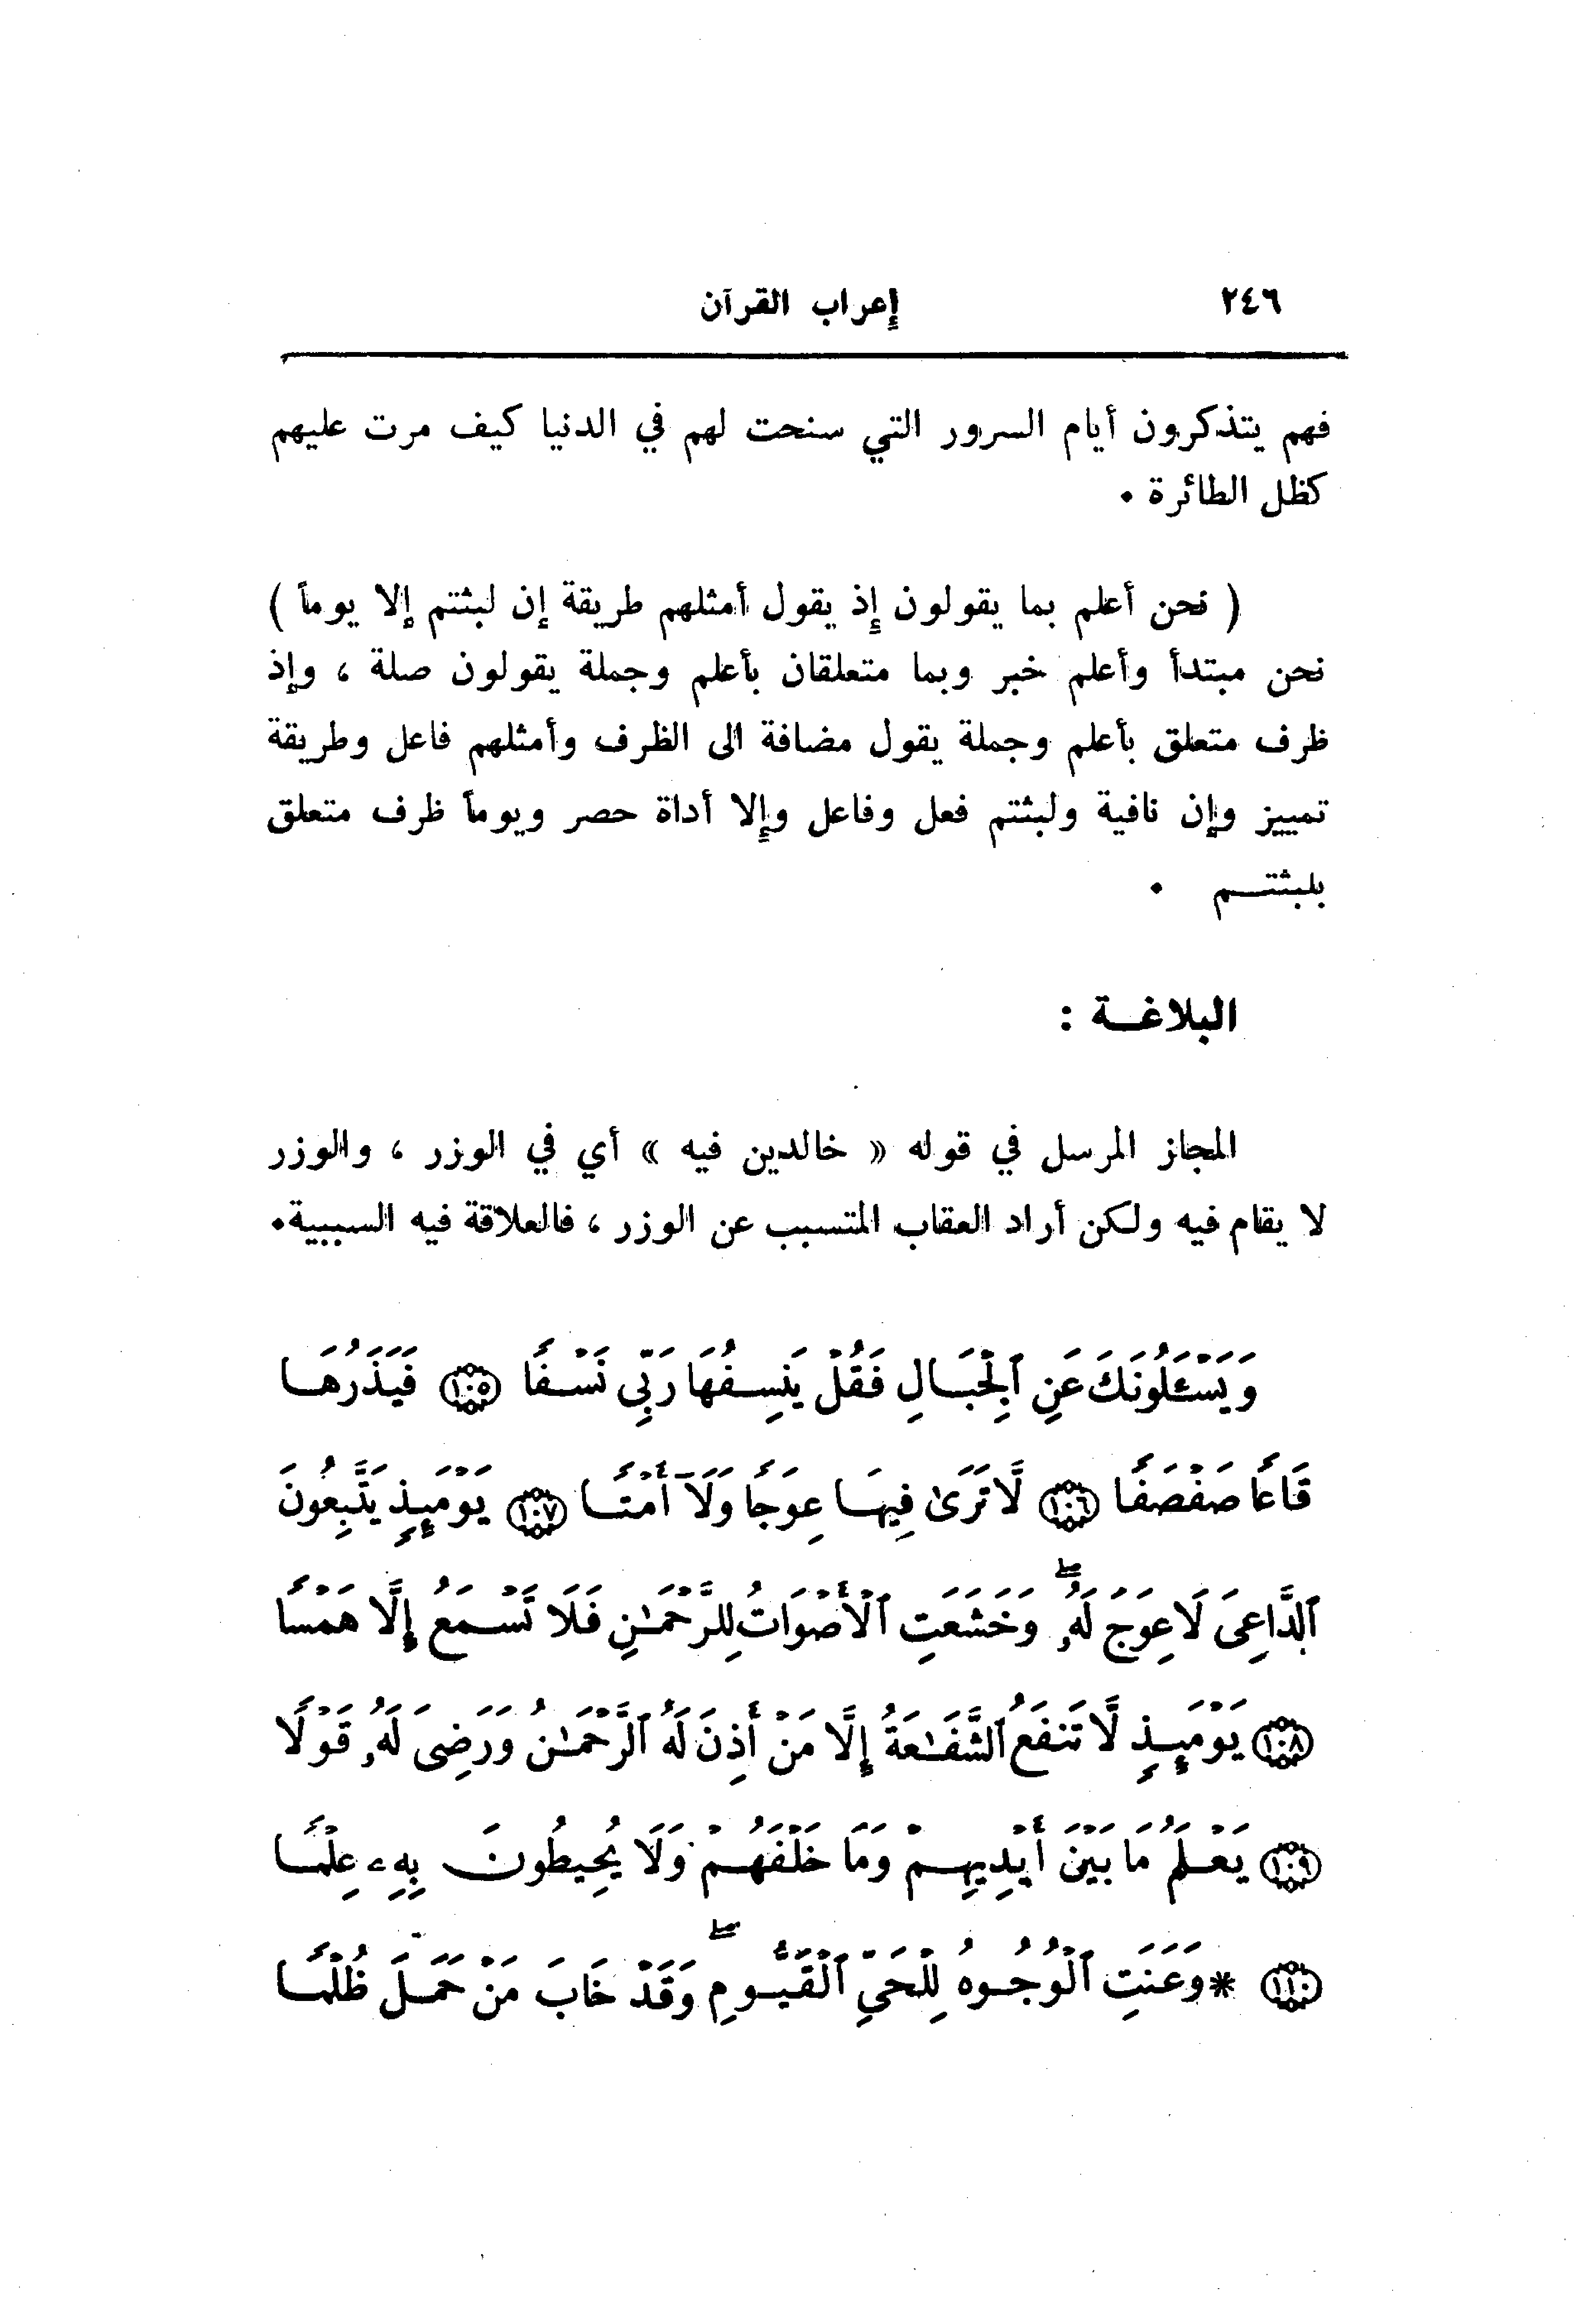 ٢٤٦ إعراب القرآن
فهم يتذكرون أيام السرور التي سنحت لهم في الدنيا كيف مرت عليهم
كظل الطائرة .
( نحن أعلم بما يقولون إذ يقول أمثلهم طريقة إن لبثتم إلا يوماً )
نحن مبتدأ وأعلم خبر وبما متعلقان بأعلم وجملة يقولون صلة ، وإذ
ظرف متعلق بأعلم وجملة يقول مضافة الى الظرف وأمثلهم فاعل وطريقة
تمييز وإن نافية ولبثتم فعل وفاعل وإلا أداة حصر ويوماً ظرف متعلق
بلبثتـــم .
البلاغـــة :
المجاز المرسل في قوله « خالدين فيه » أي في الوزر ، والوزر
لا يقام فيه ولكن أراد العقاب المتسبب عن الوزر ، فالعلاقة فيه السببية.
وَيَسْـَٔلُونَكَ عَنِ ٱلْجِبَالِ فَقُلْ يَنسِفُهَا رَبِّى نَسْفًا ١٠٥ فَيَذَرُهَا
قَاعًا صَفْصَفًا ١٠٦ لَّا تَرَىٰ فِيهَا عِوَجًا وَلَآ أَمْتًا ١٠٧ يَوْمَئِذٍ يَتَّبِعُونَ
ٱلدَّاعِىَ لَا عِوَجَ لَهُۥۖ وَخَشَعَتِ ٱلْأَصْوَاتُ لِلرَّحْمَـٰنِ فَلَا تَسْمَعُ إِلَّا هَمْسًا
١٠٨ يَوْمَئِذٍ لَّا تَنفَعُ ٱلشَّفَـٰعَةُ إِلَّا مَنْ أَذِنَ لَهُ ٱلرَّحْمَـٰنُ وَرَضِىَ لَهُۥ قَوْلًا
١٠٩ يَعْلَمُ مَا بَيْنَ أَيْدِيهِمْ وَمَا خَلْفَهُمْ وَلَا يُحِيطُونَ بِهِۦ عِلْمًا
١١٠ * وَعَنَتِ ٱلْوُجُوهُ لِلْحَىِّ ٱلْقَيُّومِۖ وَقَدْ خَابَ مَنْ حَمَلَ ظُلْمًا